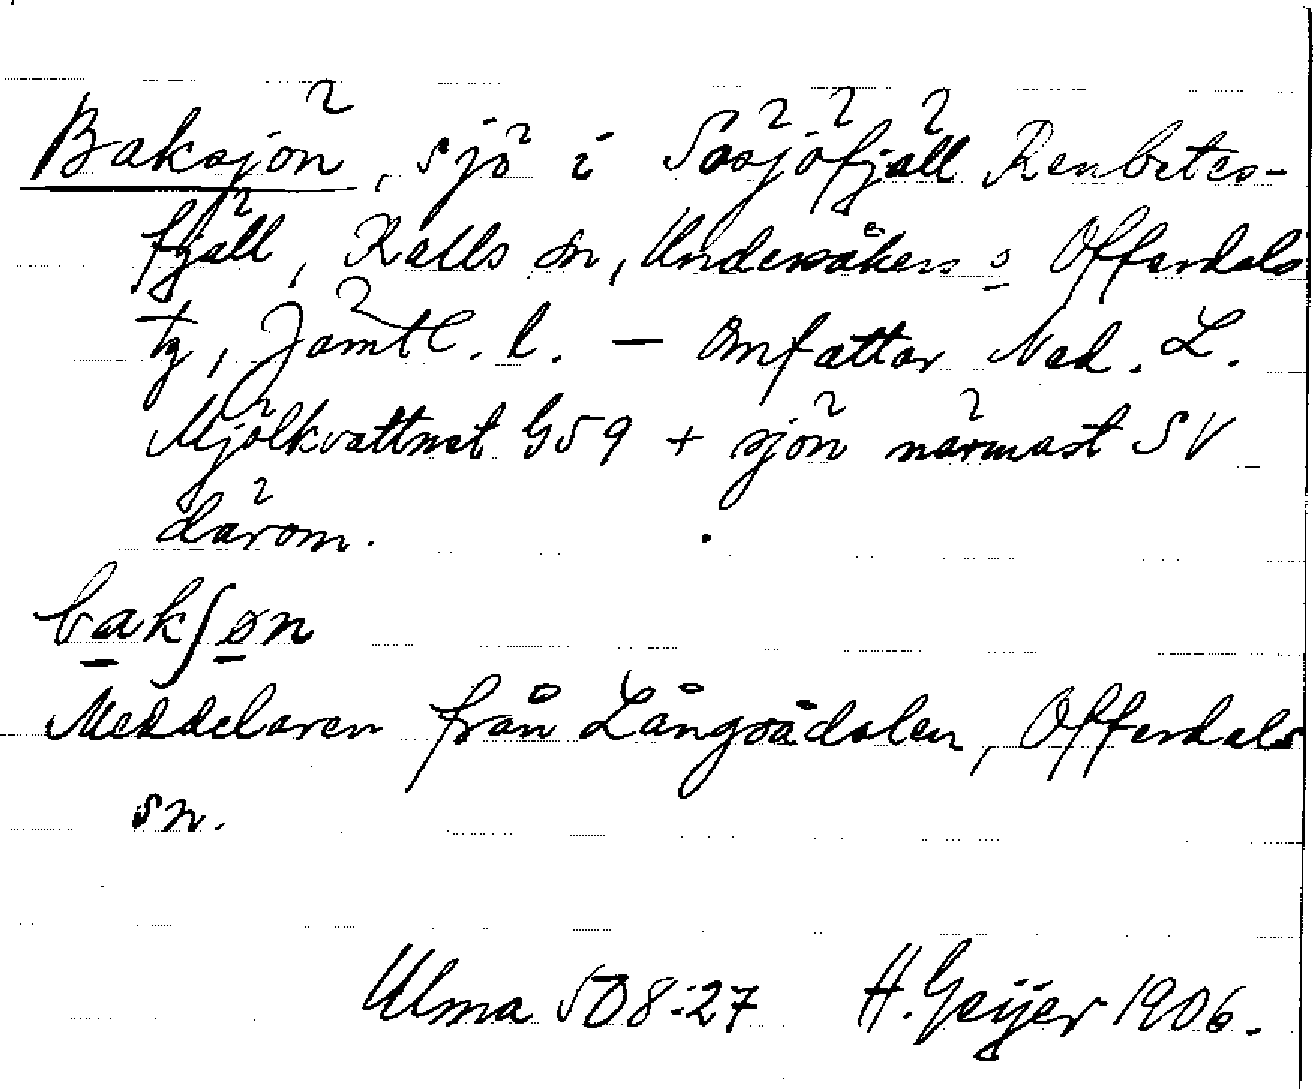 Baksjön, sjö i Sösjöfjäll Renbetes-
fjäll, Kalls sn, Undersåkers o Offerdals
tg, Jämtl. l. – Omfattar Ned. L.
Mjölkvattnet G59 + sjön närmast SV
därom.
bakʃøn
Meddelaren från Långsådalen, Offerdals
sn.
Ulma 508:27 H. Geijer 1906.